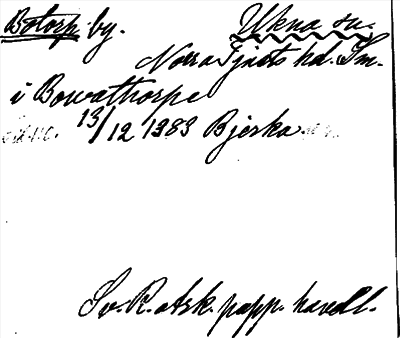 Botorp by. Ukna sn.
Norra Tjusts hd. Sm.
i Bowathorpe
13/12 1383 Bjerka
Sv. R. ark. papp. handl.